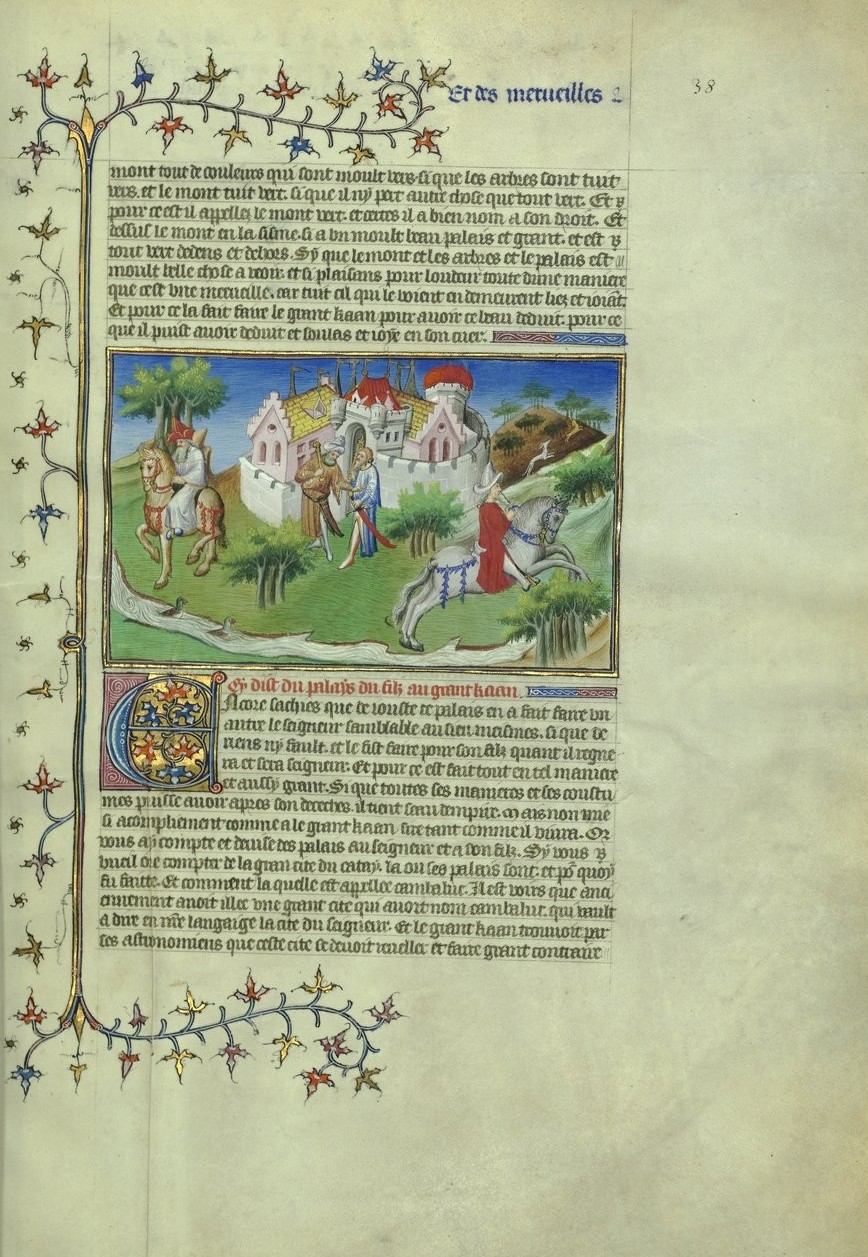 Et des merueilles
38
mont tout de couleurs qui sont moult vers. si que les arbres sont tuit
vers. et le mont tuit vert. si que il ny pert autre chose que tout vert. Et
pour ce est il appellez le mont vert. et certes il a bien nom a son droit. Et
dessus le mont en la sisme. si a vn moult beau palais et grant. et est
tout vert dedens et dehors. Sy que le mont et les arbres et le palais est
moult belle chose a veoir. et si plaisans pour loudeur toute dune maniere
que cest vne merueille. car tuit cil qui le voient en demeurent liez et ioiāt.
Et pour ce la fait faire le grant kaan pour auoir ce beau deduit. pour ce
que il puist auoir deduit et soulas et ioye en son cuer.
Cy dist du palays du filz au grant kaan.
Encore sachies que de iouste ce palais en a fait faire vn
autre le seigneur samblable au sien meismes. si que de
riens ny fault. et le fist faire pour son filz quant il regne
ra et sera seigneur. Et pour ce est fait tout en tel maniere
et aussy grant. Si que toutes ses manieres et ses coustu
mes puisse auoir apres son deceches. il tient seau dempire. Mais non mie
si acomplieement comme a le grant kaan sire tant comme il viura. Or
vous ay compte et deuise des palais au seigneur et a son filz. Sy vous
vueil ore compter de la gran cite du catay. la ou ses palais sont. et po quoy
fu faitte. Et comment la quelle est appellee cambaluc. Il est voirs que anci
ennement auoit illec vne grant cite qui auoit nom cambaluc. qui vault
a dire en nre langaige la cite du seigneur. Et le grant kaan trouuoit par
ses astronomiens que ceste cite se deuoit reueller et faire grant contraire